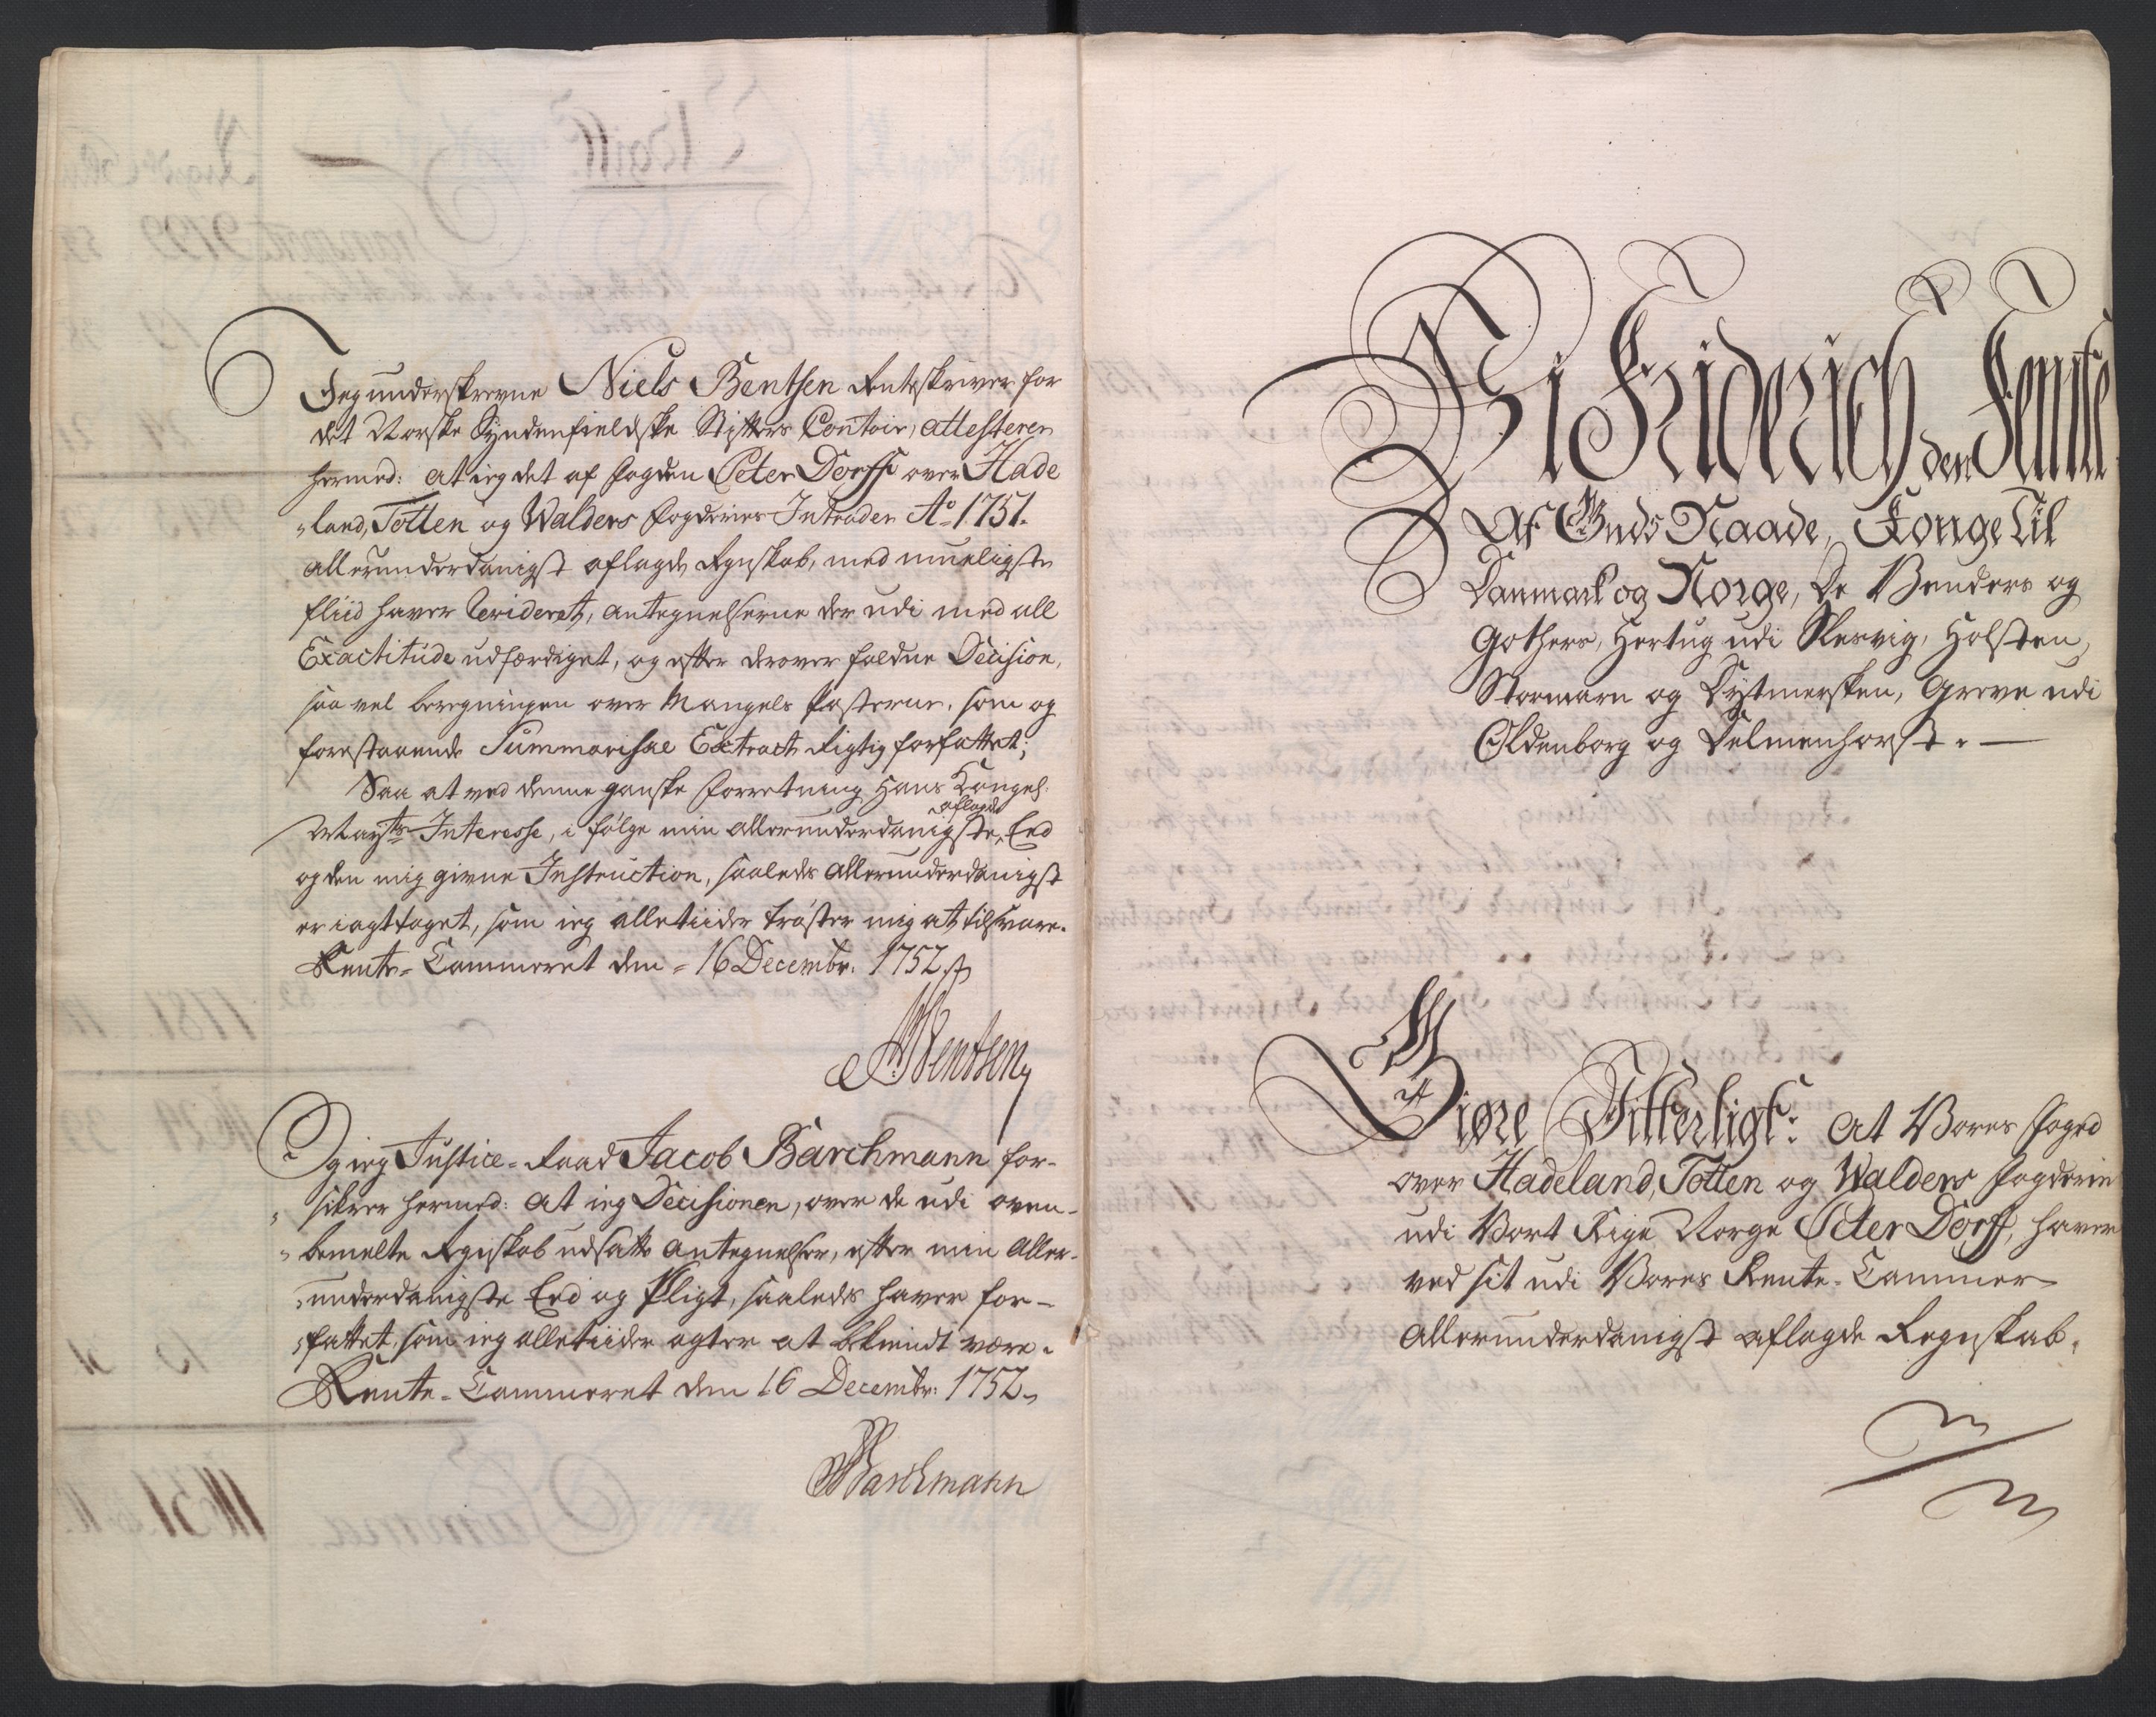 Jeg underskrevne Niels Bentsen Renteskriver for
det Norske Syndenfieldske Stifters Contoir, attesterer
hermed: at ieg det af Fogden Peter Dorff over Hade
"land, Totten og Walders Fogderies Intrader Ao 1751.
allerunderdanigst aflagde Regnskab, med mueligste
fliid haver Revideret, antegnelserne der udi med all
Exactitude udfærdiget, og efter derover faldne Decision,
saa vel beregningen over Mangels Posterne, som og
forestaaende Summariske Extract Rigtig forfattet;
Saa at ved denne ganske Forretning Hans Kongel:
Mayts Interesse, i følge min allerunderdanigste aflagde Eed
og den mig givne Instruction, saaledes allerunderdanigst
er iagttaget, som ieg alletiider trøster mig at tilsvare.
Rente-Cammeret den 16 Decembr: 1752.
NBentsen
Og ieg Justice-Raad Jacob Barchmann for-
"sikrer hermed: at ieg Decisionen, over de udi oven-
"bemelte Regnskab udsatte antegnelser, efter min aller-
"underdanigste Eed og Pligt, saaledes haver for-
"fattet, som ieg alletiider agter at bekiendt være.
Rente-Cammeret den 16 Decembr: 1752.
Barchmann
Vi Friderich den Femte
Af Guds Naade, Konge Til
Danmark og Norge, De Venders og
Gothers, Hertug udi Slesvig, Holsten,
Stormarn og Dytmersken, Greve udi
Oldenborg og Delmenhorst. —
Giøre Vitterligt: at Vores Foged
over Hadeland, Totten og Walders Fogderie
udi Vort Rige Norge Peter Dorff, haver
ved sit udi Vores Rente-Cammer
allerunderdanigst aflagde Regnskab,